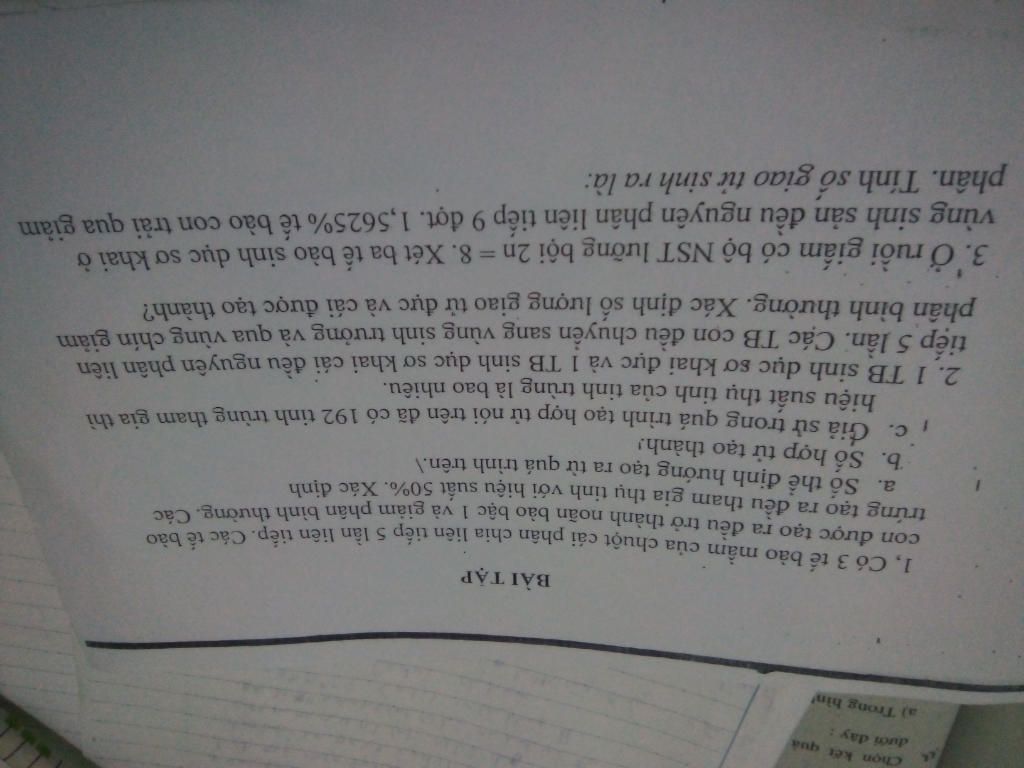 BÀI TẬP
1, Có 3 tế bào mầm của chuột cái phân chia liên tiếp 5 lần liên tiếp. Các tế bào
con được tạo ra đều trở thành noãn bào bậc 1 và giảm phân bình thường. Các
trứng tạo ra đều tham gia thụ tinh với hiệu suất 50%. Xác định
a. Số thể định hướng tạo ra từ quá trình trên.\
b. Số hợp tử tạo thành!
c. Giả sử trong quá trình tạo hợp tử nói trên đã có 192 tinh trùng tham gia thì
hiệu suất thụ tinh của tinh trùng là bao nhiêu.
2. 1 TB sinh dục sơ khai đực và 1 TB sinh dục sơ khai cái đều nguyên phân liên
tiếp 5 lần. Các TB con đều chuyển sang vùng sinh trưởng và qua vùng chín giảm
phân bình thường. Xác định số lượng giao tử đực và cái được tạo thành?
3. Ở ruồi giấm có bộ NST lưỡng bội 2n = 8. Xét ba tế bào sinh dục sơ khai ở
vùng sinh sản đều nguyên phân liên tiếp 9 đợt. 1,5625% tế bào con trải qua giảm
phân. Tính số giao tử sinh ra là:
Chọn kết quả
dưới đây :
a) Trong hìn